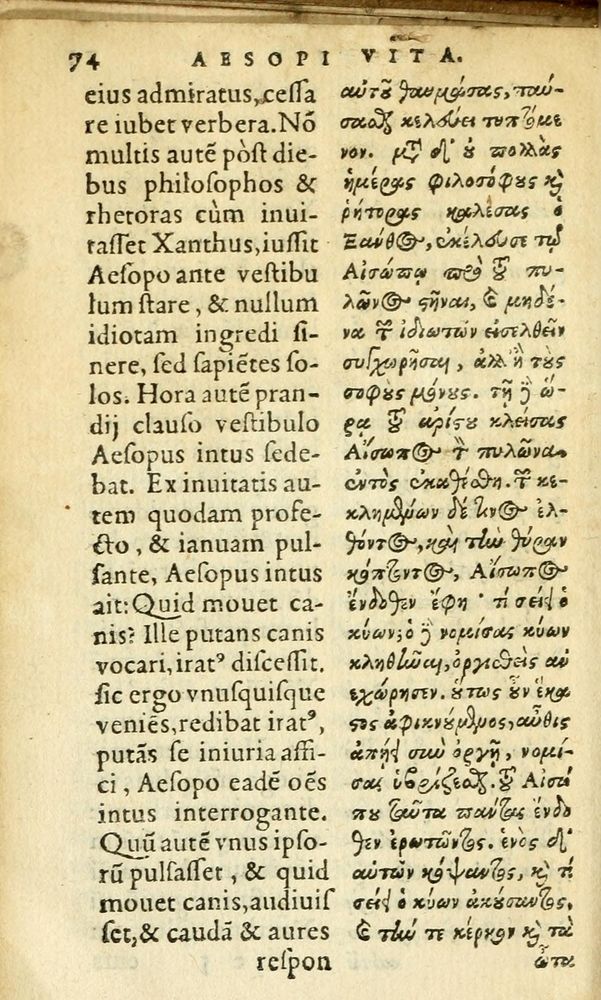 74 AESOPI VITA.
eius admiratus, ceſſa
re iubet verbera. Nõ
multis autẽ pòſt die-
bus philoſophos &
rhetoras cùm inui-
taſſet Xanthus, iuſſit
Aeſopo ante veſtibu
lum ſtare, & nullum
idiotam ingredi ſi-
nere, ſed ſapiẽtes ſo-
los. Hora autẽ pran-
dij clauſo veſtibulo
Aeſopus intus ſede-
bat. Ex inuitatis au-
tem quodam profe-
cto, & ianuam pul-
ſante, Aeſopus intus
ait: Quid mouet ca-
nis? Ille putans canis
vocari, iratꝰ diſceſſit.
ſic ergo vnuſquiſque
veniẽs, redibat iratꝰ,
putãs ſe iniuria affi-
ci, Aeſopo eadẽ oẽs
intus interrogante.
Quũ autẽ vnus ipſo-
rũ pulſaſſet, & quid
mouet canis, audiuiſ
ſet, & caudã & aures
reſpon
αυτοῦ θαυμάσας, παύ-
σαϑ κελεύει τυπτόμε
νον. μετ δ' οὐ πολλὰς
ἡμέρας φιλοσόφους κὶ
ῥήτορας καλέσας ὁ
Ξανθος, ἐκέλευσε τῷ
Αἰσώπῳ πρὸ τοῦ πυ-
λῶνος ϛῆναι, καὶ μηδέ-
να τῶν ἰδιωτῶν εἰσελθεῖν
συγχωρῆσαι, ἀλλ' ἢ τοὺς
σοφοὺς μόνους. τῇ δὲ ὥ-
ρᾳ τοῦ ἀρίϛου κλείσας
Αἴσωπος τὸν πυλῶνα
ἐντὸς ἐκαθέσθη. τῶν κε-
κλημένων δέ τινος ἐλ-
θόντος, καὶ τὴν θύραν
κόπτοντος, Αἴσωπος
ἔνδοθεν ἔφη· τί σείει ὁ
κύων; ὁ δὲ νομίσας κύων
κληθῆναι, ὀργισθεὶς αν
εχώρησεν. οὕτως οὖν ἕκα
ϛος ἀφικνούμενος, αὖθις
ἀπῄει σὺν ὀργῇ, νομί-
σας ὑβρίζεσθαι. τοῦ Αἰσώ
που ταῦτα πάντας ἔνδο
θεν ἐρωτῶντος. ἑνὸς δ'
αὐτῶν κόψαντος, κὶ τί
σείει ὁ κύων ἀκούσαντος,
καὶ τήν τε κέρκον κὶ τὰ
ὦτα